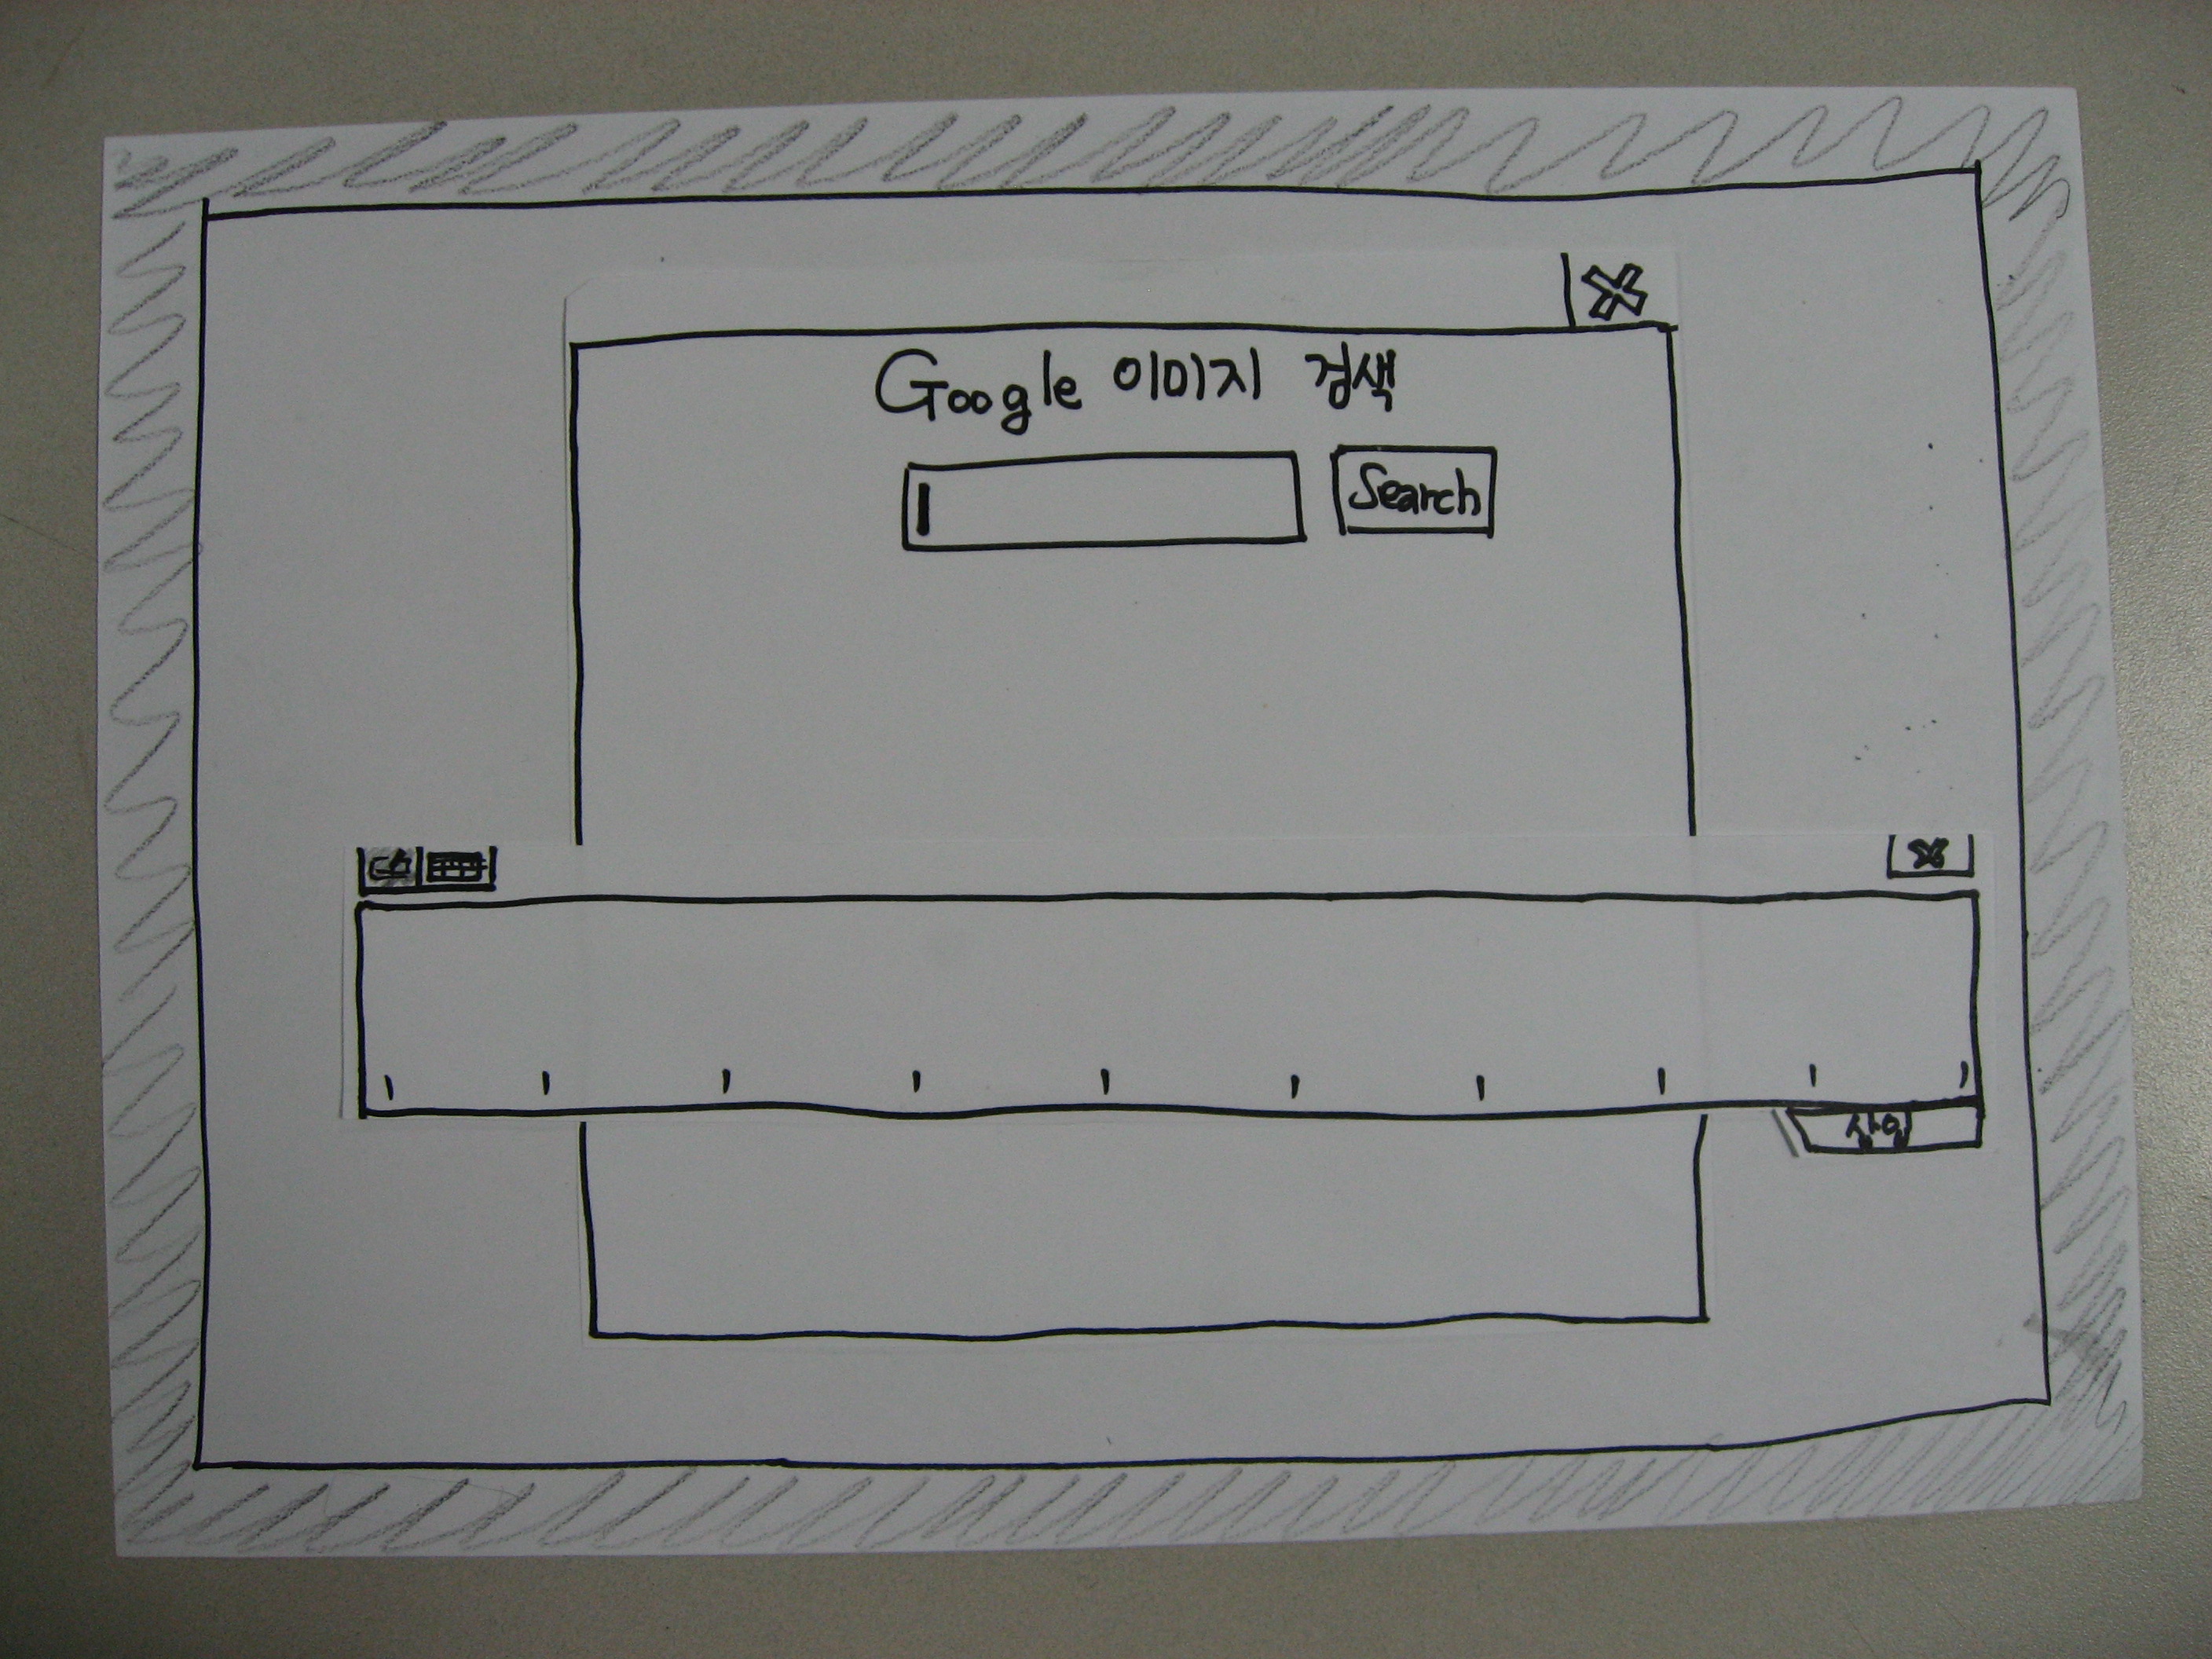 Google 이미지 검색
Search
삽입